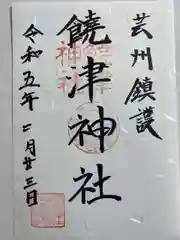 芸州鎮護
饒津神社
令和五年二月廿三日